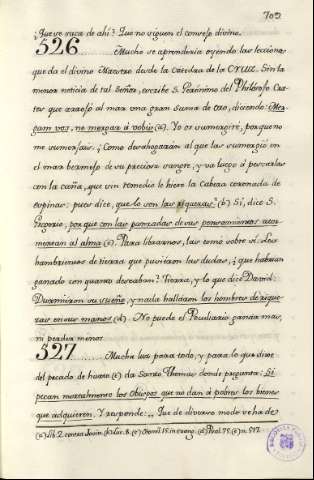 702
¿Que se saca de ahi? Que no siguen el consejo divino.
526 ..... Mucho se aprenderia oyendo las leccions
que da el divino Maestro desde la Catedra de la CRUZ. Sin la
menor noticia de tal Señor, escribe S. Geronimo del Philosofo Cra-
ter que arrojó al mar una gran suma de oro, diciendo: Mer-
gam vos, ne mergar á vobis (a). Yo os sumergiré, porque no
me sumerjais. ¡Como desahogarán al que las sumergió en
el mar bermejo de su preciosa sangre, y va luego á pescarlas
con la caña, que sin remedio le hiere la Cabeza coronada de
espinas: pues dice, que lo son las riquezas? (b) Si, dice S.
Gregorio, porque con las punzadas de sus pensamientos ator-
mentan al alma (c). Para librarnos, las tomó sobre si. Los
hambrientos de tierra que pusieron las dudas, ¿que habrian
ganado con quanto deseaban? Tierra, y lo que dice David:
Durmieron su sueño, y nada hallaron los hombres de rique-
zas en sus manos (d). No puede el Peculiario ganar mas,
ni perder menos.
527 ..... Mucha luz para todo, y para lo que dixe
del pecado de hurto (e) da Santo Thomas donde pregunta: Si
pecan mortalmente los Obispos que no dan á pobres los bienes
que adquieren. Y responde: „Que de diverso modo se ha de